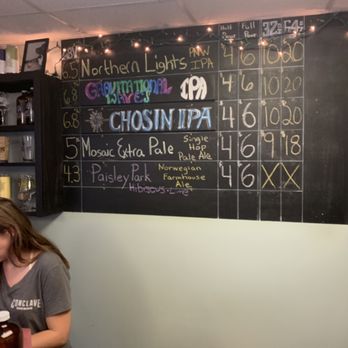 Half Pour Full Pour 32oz 64oz
6.5 Northern Lights PNW IPA 4 6 10 20
6.8 GRAVITATIONAL WAVES IPA 4 6 10 20
6.8 CHOSIN IPA 4 6 10 20
5 Mosaic Extra Pale Single Hop Pale Ale 4 6 9 18
4.3 Paisley Park Norwegian Farmhouse Ale 4 6 X X
Hibiscus-Lime
CONCLAVE